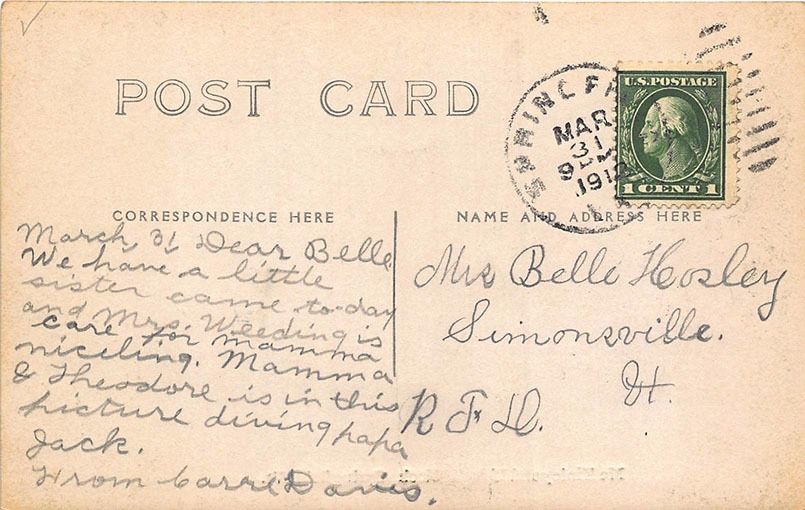 POST CARD
SPRINGFI
MAR
31
9
1912
U.S. POSTAGE
1 CENT 1
CORRESPONDENCE HERE
NAME AND ADDRESS HERE
March 31 Dear Belle
We have a little
sister came to-day
and Mrs. Weeding is
care for mamma
niceling. Mamma
& Theodore is in this
picture diving papa
Jack.
From Carre Davis.
Mrs Belle Hosley
Simonsville.
Vt.
R. F. D.